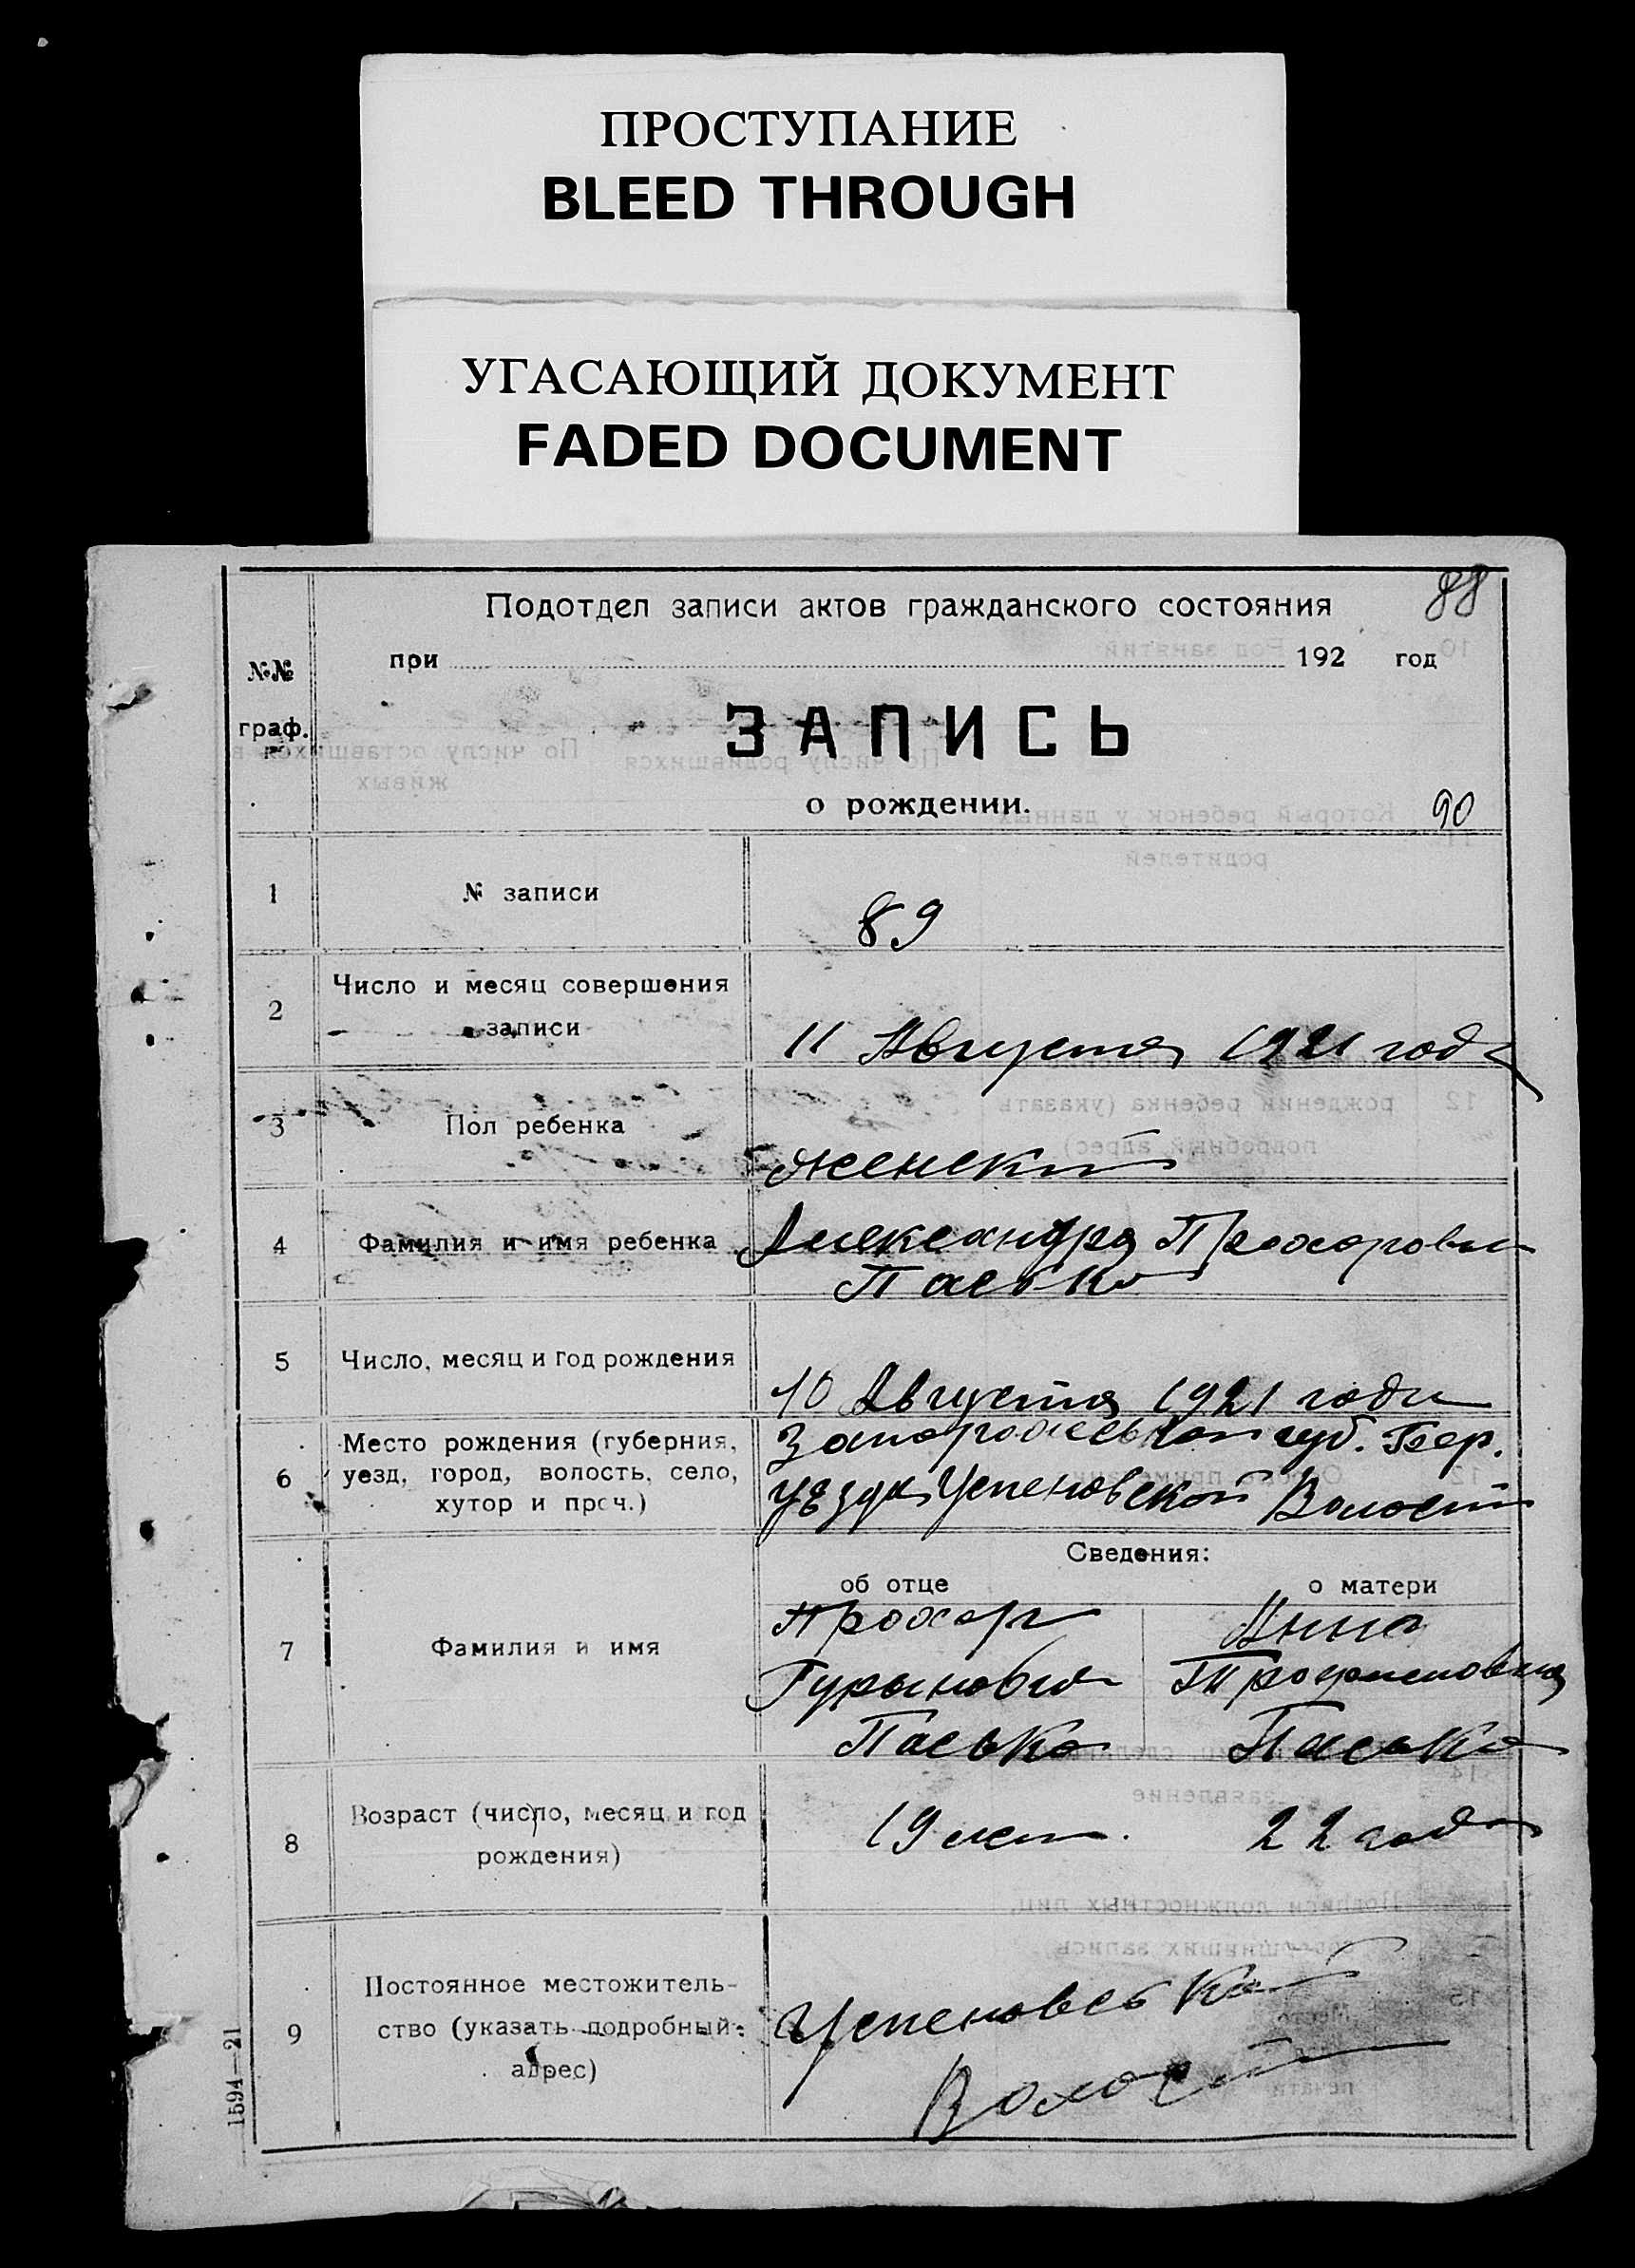 ПРОСТУПАНИЕ
BLEED THROUGH
УГАСАЮЩИЙ ДОКУМЕНТ
FADED DOCUMENT
88
Подотдел записи актов гражданского состояния
при 192 год
№№
граф.
ЗАПИСЬ
о рождении.
90
1 № записи 89
2 Число и месяц совершения
записи
11 Августа 1921 года
3 Пол ребенка женский
4 Фамилия и имя ребенка Александра Прохоровы
Пасько
5 Число, месяц и год рождения
10 Августа 1921 года
6 Место рождения (губерния,
уезд, город, волость, село,
хутор и проч.)
Запорожеськой губ. Бер.
уѣзда Успеновской Волости
Сведения:
об отце о матери
7 Фамилия и имя
Прохор Анна
Гурынович Трофимовна
Пасько Пасько
8 Возраст (число, месяц и год
рождения)
19 лет. 22 года
9 Постоянное местожитель-
ство (указать подробный
адрес)
Успеновськой
Волости
1594—21